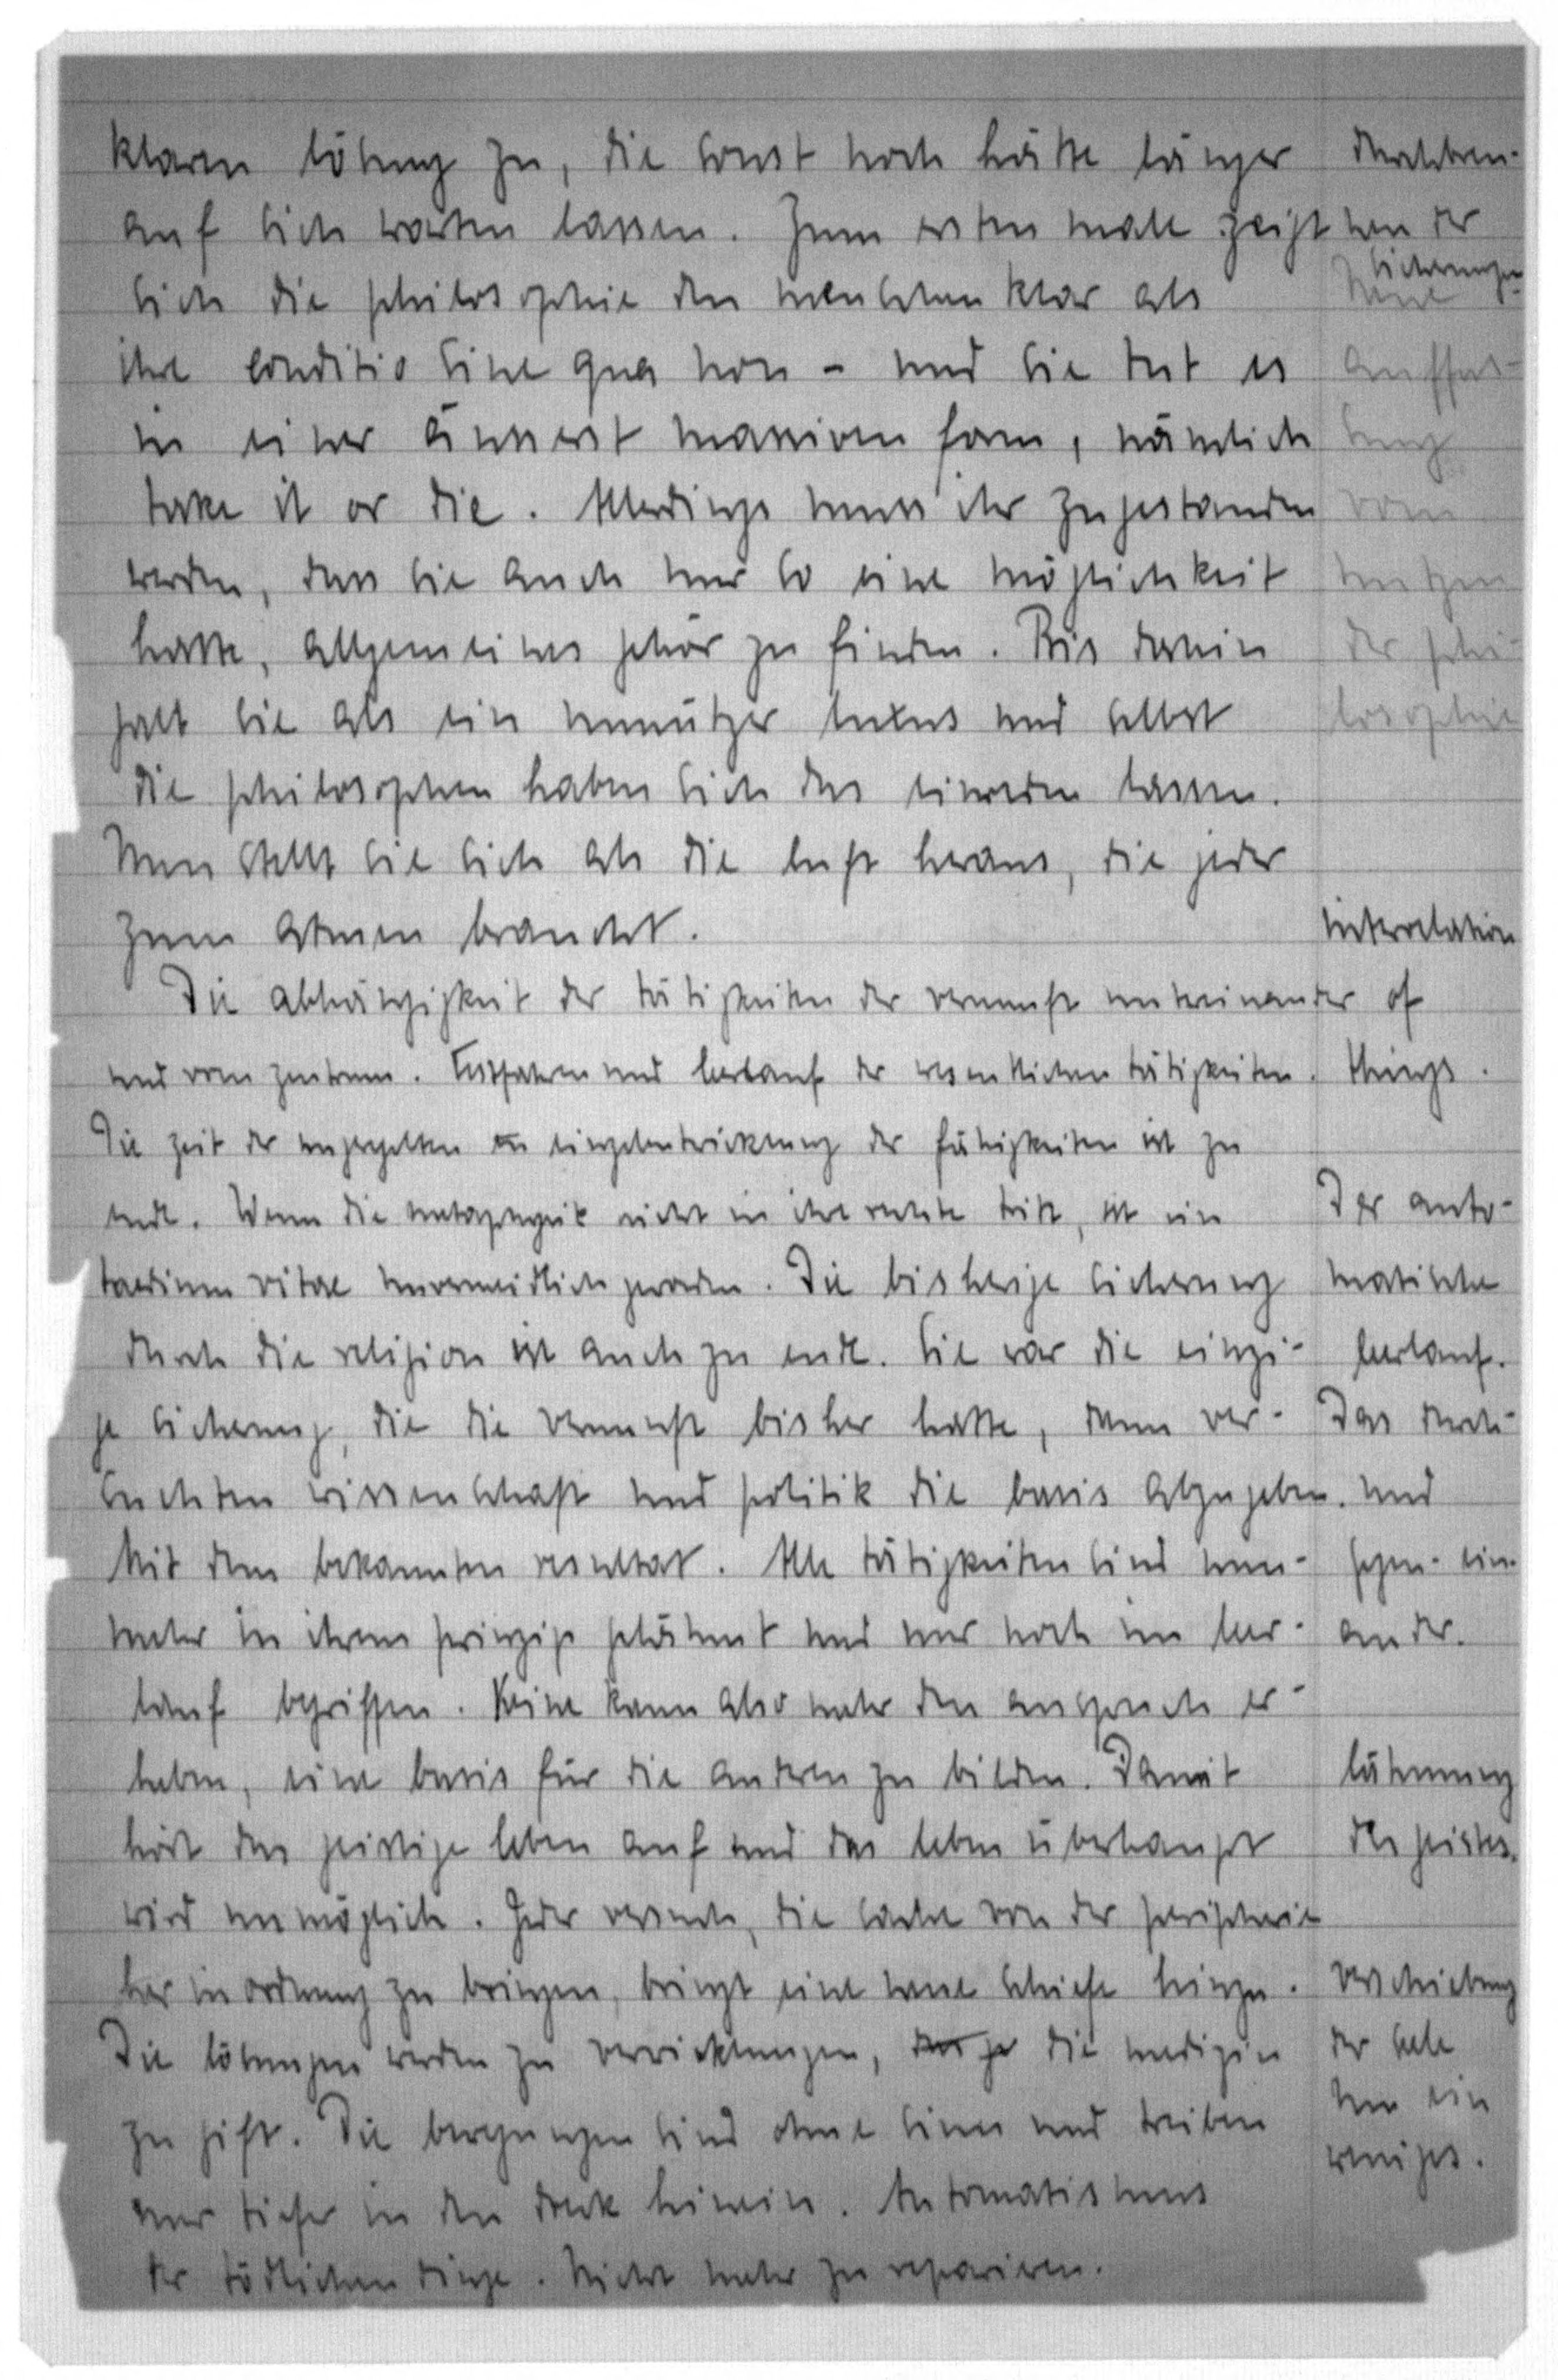 klaren lösung zu, die sonst noch hätte länger
auf sich warten lassen. Zum ersten male zeigt
sich die philosophie den menschen klar als
ihre conditio sine qua non - und sie tut es
in einer äusserst massiven form, nämlich
take it or die. Allerdings muss ihr zugestanden
werden, dass sie auch nur so eine möglichkeit
hatte, allgemeines gehör zu finden. Bis dahin
galt sie als ein unnützer luxus und selbst
die philosophen haben sich das einreden lassen.
Nun stellt sie sich als die luft heraus, die jeder
zum atmen braucht.
durchbren-
nen der
sicherungen
neue
auffas-
sung
vom
nutzen
der phi-
losophie
Die abhängigkeit der tätigkeiten der vernunft untereinander
und vom zentrum. Festfahren und leerlauf der wesentlichen tätigkeiten.
Die zeit der ungeregelten einzelentwicklung der fähigkeiten ist zu
ende. Wenn die metaphysik nicht in ihre rechte tritt, ist ein
taedium vitae unvermeidlich geworden. Die bisherige sicherung
durch die religion ist auch zu ende. Sie war die einzi-
ge sicherung, die die vernunft bisher hatte, dann ver-
suchten wissenschaft und politik die basis abzugeben.
Mit dem bekannten resultat. Alle tätigkeiten sind nun-
mehr in ihrem prinzip gelähmt und nur noch im leer-
lauf begriffen. Keine kann also mehr den anspruch er-
heben, eine basis für die anderen zu bilden. Damit
hört das geistige leben auf und das leben überhaupt
wird unmöglich. Jeder versuch, die sache von der peripherie
her in ordnung zu bringen, bringt eine neue schiefe hinzu.
Die lösungen werden zu verwicklungen, die medizin
zu gift. Die bewegungen sind ohne sinn und treiben
nur tiefer in den dreck hinein. Automatismus
der tödlichen dinge. Nicht mehr zu repariren.
interrelation
of
things.
Der auto-
matische
leerlauf.
Das durch-
und
gegen-ein-
ander.
lähmung
des geistes.
verschiebung
der
um ein
weniges.